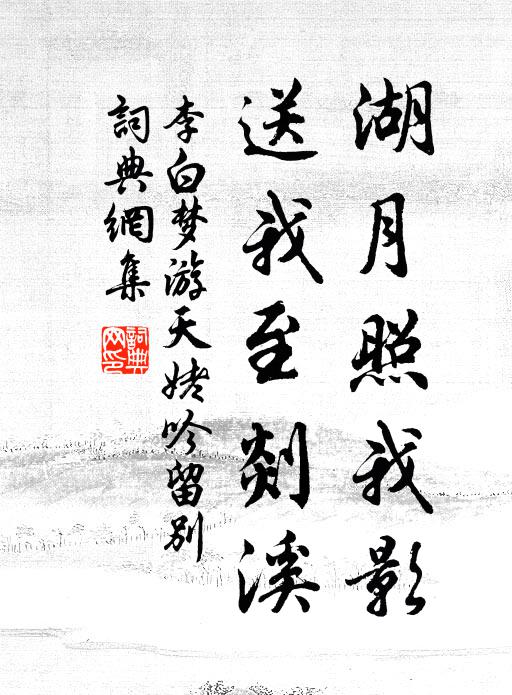 湖月照我影
送我至剡溪
李白梦游天姥吟留别
詞典網集
詞典
网印